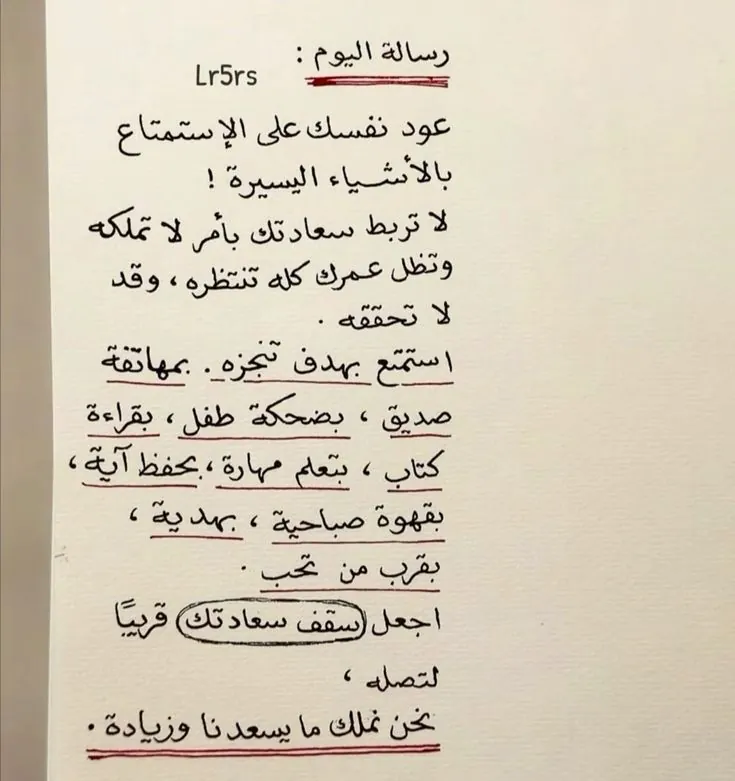 رسالة اليوم :
Lr5rs
عود نفسك على الإستمتاع
بالأشياء اليسيرة !
لا تربط سعادتك بأمر لا تملكه
وتظل عمرك كله تنتظره ، وقد
لا تحققه .
استمتع بهدف تنجزه . بمهاتفة
صديق ، بضحكة طفل ، بقراءة
كتاب ، بتعلم مهارة ، بحفظ آية ،
بقهوة صباحية ، بهدية ،
بقرب من تحب .
اجعل سقف سعادتك قريبًا
لتصله ،
نحن نملك ما يسعدنا وزيادة .